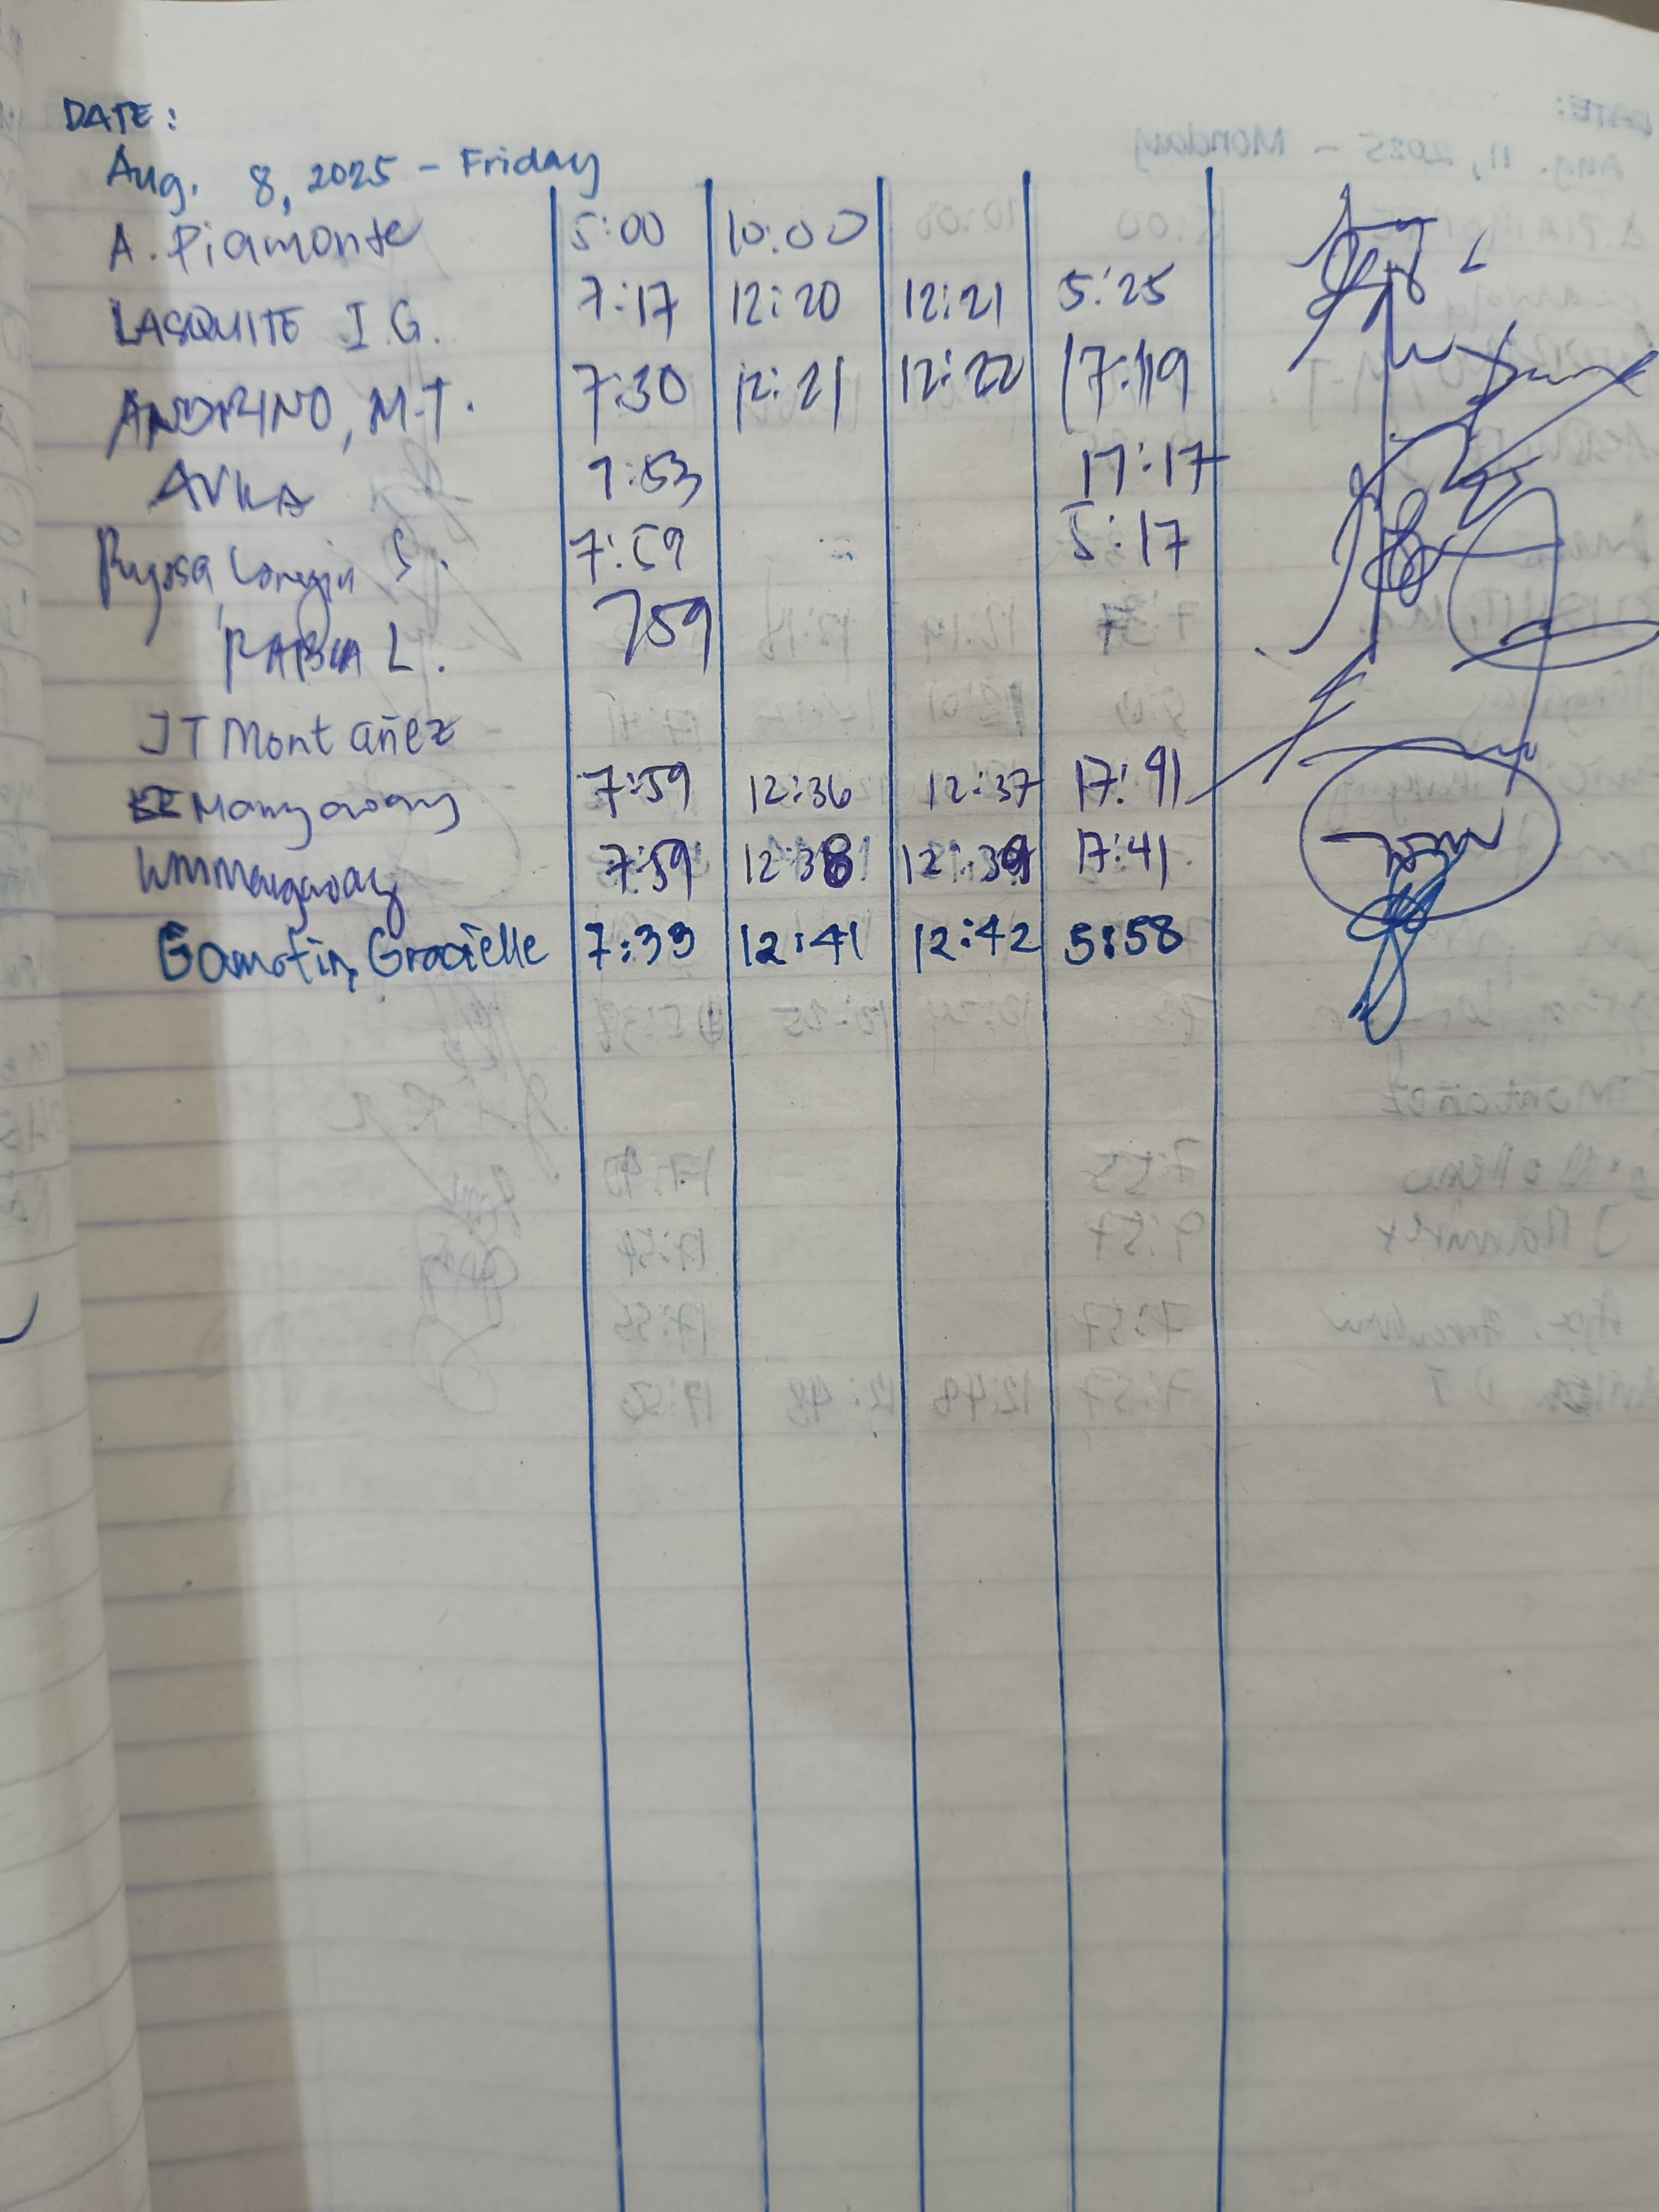 DATE:
Aug. 8, 2025 - Friday
A. Piamonte 5:00 10:00
LASQUITE I.G. 7:17 12:20 12:21 5:25
ANDRINO, M.T. 7:30 12:21 12:22 17:19
7:53 17:17
S. 7:59 5:17
L. 759
JT Montañez
Mangaoang 7:59 12:36 12:37 17:41
7:59 12:38 12:39 17:41
Gamotin, Gracielle 7:33 12:41 12:42 5:58